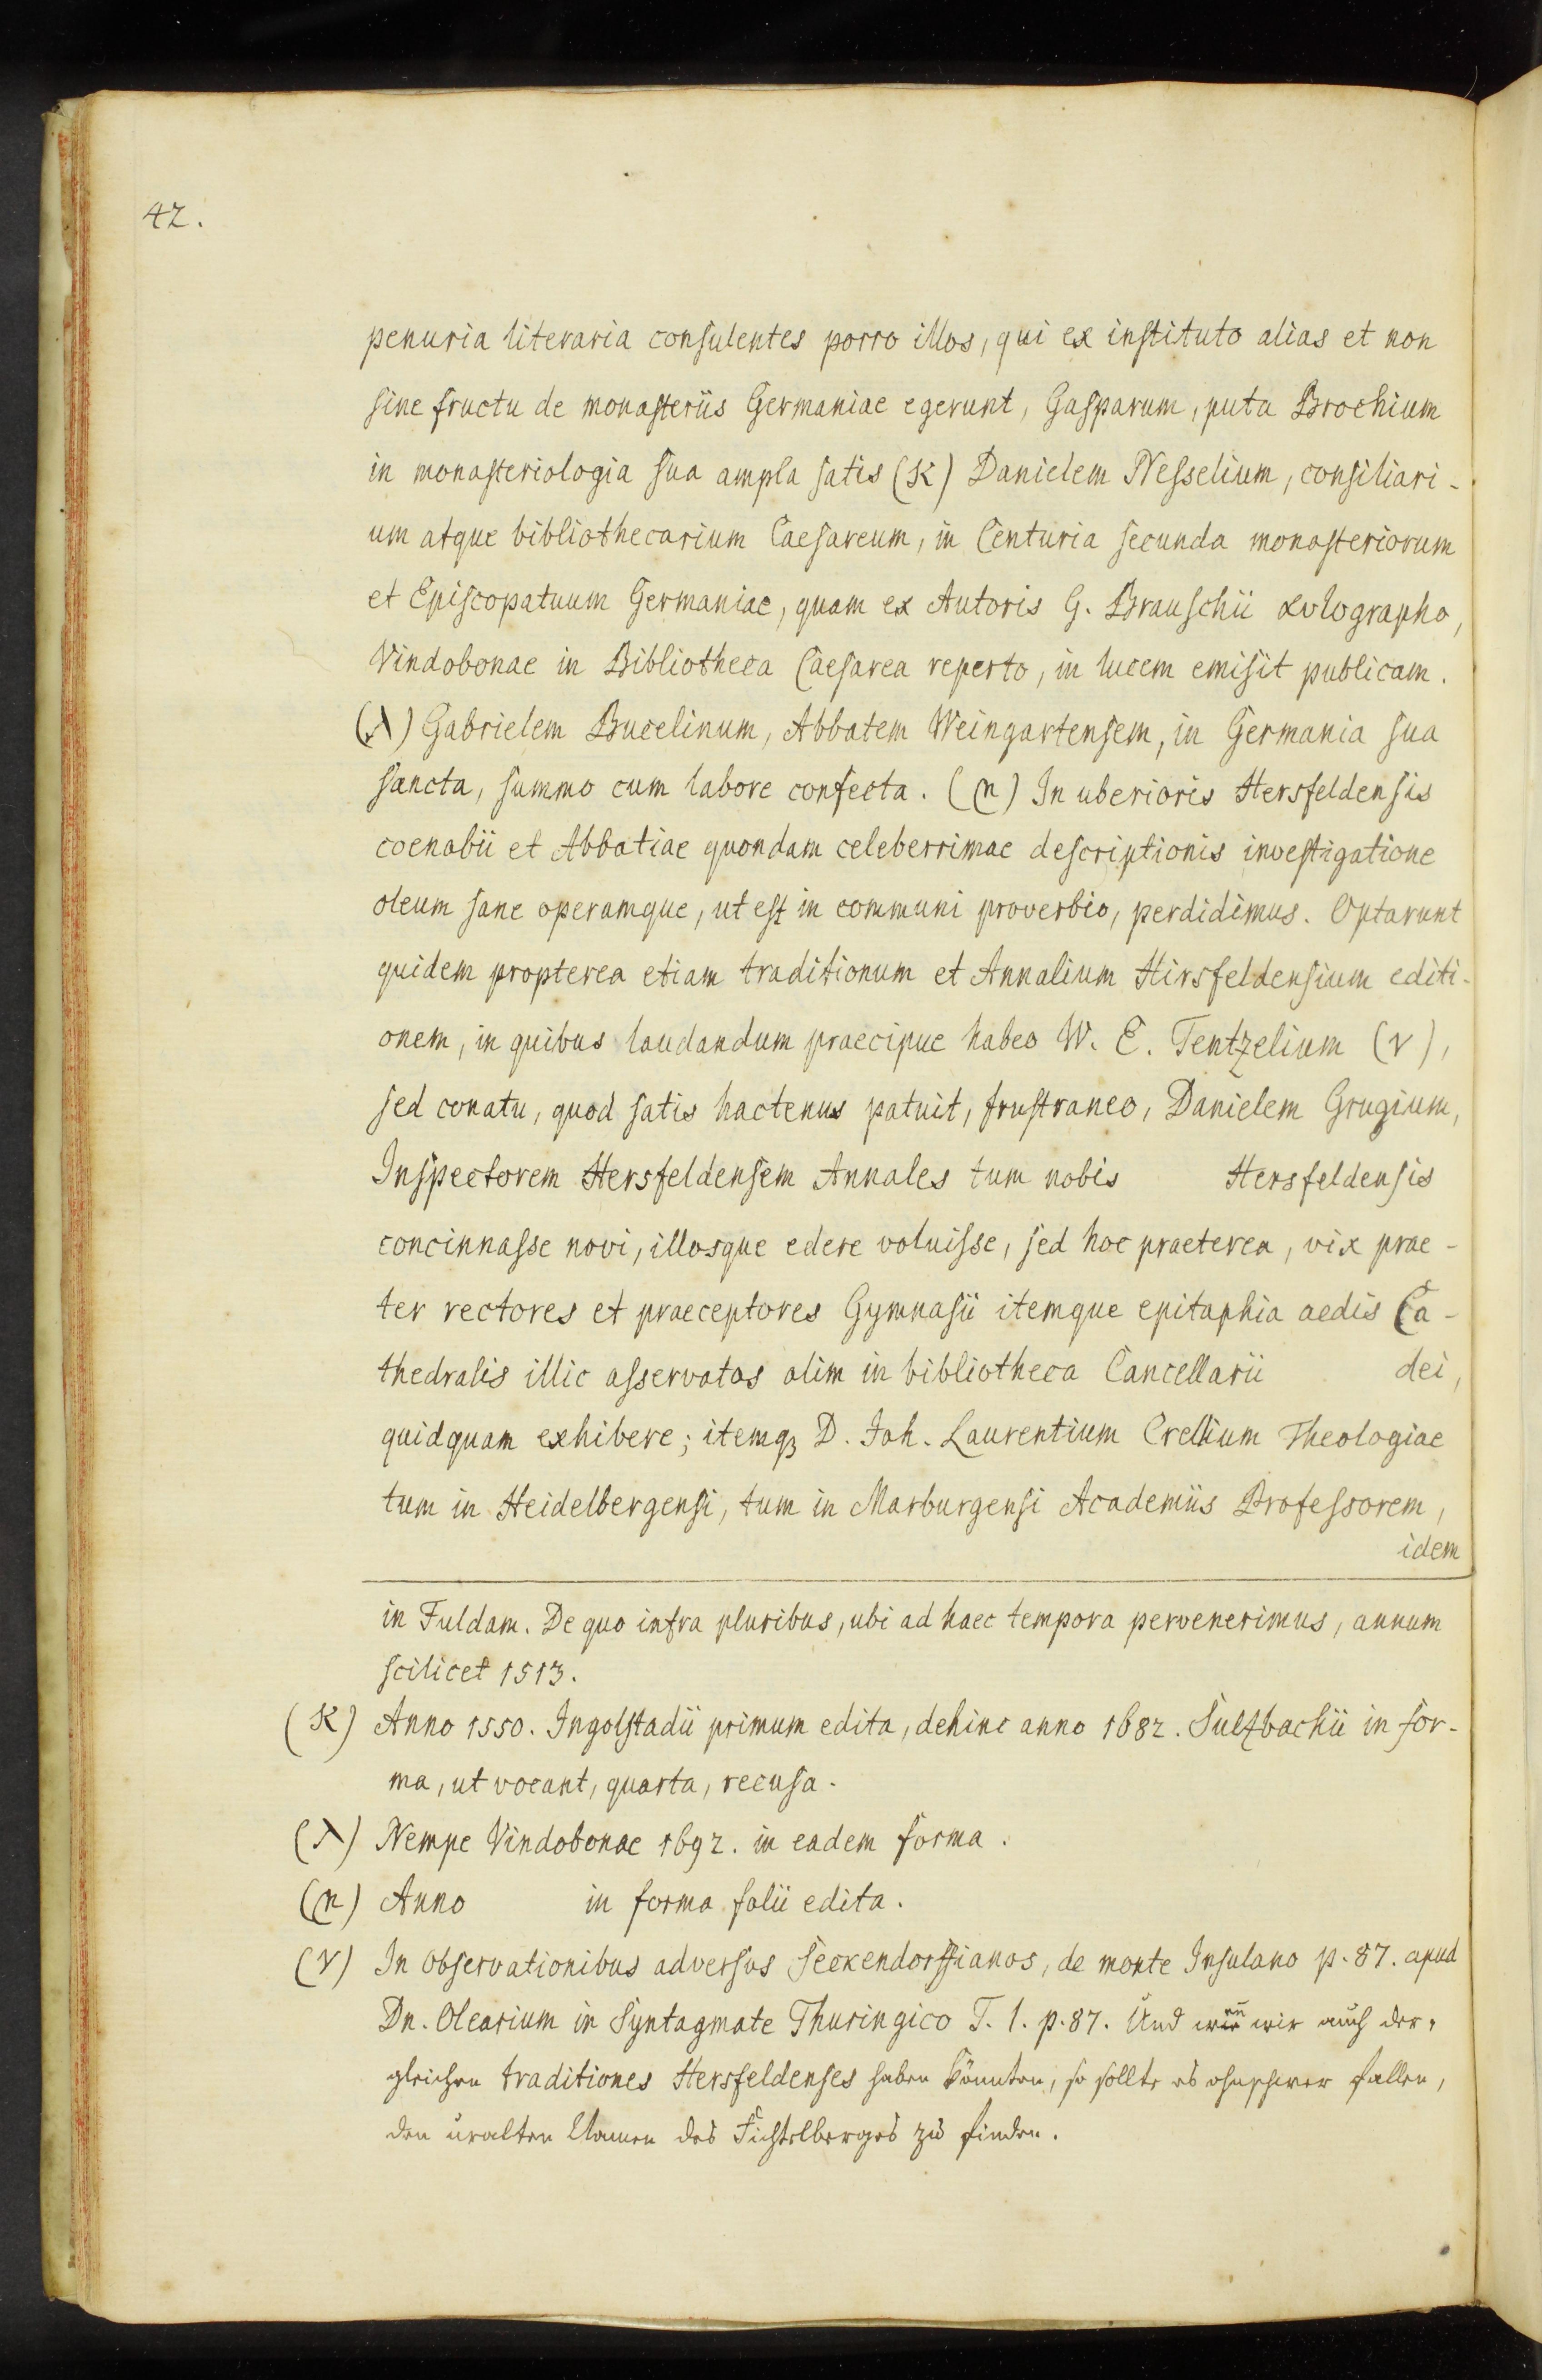 42.
penuria literaria consulentes porro illos, qui ex instituto alias et non
sine fructu de monasteriis Germaniae egerunt, Gasparum, puta Brochium
in monasteriologia sua ampla satis (K) Danielem Nesselium, consiliari-
um atque bibliothecarium Caesareum, in Centuria secunda monasteriorum
et Episcopatuum Germaniae, quam ex Autoris G. Brauschii
Vindobonae in Bibliotheca Caesarea reperto, in lucem emisit publicam.
(λ) Gabrielem Bucelinum, Abbatem Weingartensem, in Germania sua
sancta, summo cum labore confecta. (m) In uberioris Hersfeldensis
coenobii et Abbatiae quondam celeberrimae descriptionis investigatione
oleum sane operamque, ut est in communi proverbio, perdidimus. Optarunt
quidem propterea etiam traditionum et Annalium Hirsfeldensium editi-
onem, in quibus laudandum praecipue habeo W. E. Tentzelium (ν),
sed conatu, quod satis hactenus patuit, frustraneo, Danielem Grugium,
Inspectorem Hersfeldensem Annales tum nobis Hersfeldensis
concinnasse novi, illosque edere voluisse, sed hoc praeterea, vix prae-
ter rectores et praeceptores Gymnasii itemque epitaphia aedis Ca-
thedralis illic asservatas olim in bibliotheca Cancellarii dei,
quidquam exhibere; itemq; D. Joh. Laurentium Crellium Theologiae
tum in Heidelbergensi, tum in Marburgensi Academiis Professorem,
idem
in Fuldam. De quo infra pluribus, ubi ad haec tempora pervenerimus, annum
scilicet 1513.
(K) Anno 1550. Ingolstadii primum edita, dehinc anno 1682. Sultzbachii in for-
ma, ut vocant, quarta, recusa.
(λ) Nempe Vindobonae 1692. in eadem forma.
(m) Anno in forma folii edita.
(ν) In Observationibus adversus Seckendorffianos, de monte Insulano p. 87. apud
Dn. Olearium in Syntagmate Thuringico T. 1. p. 87. Und wir auch der-
gleichen traditiones Hersfeldenses haben könnten, so sollte es ohnschwer fallen,
den uralten Namen des Fichtelberges zu finden.